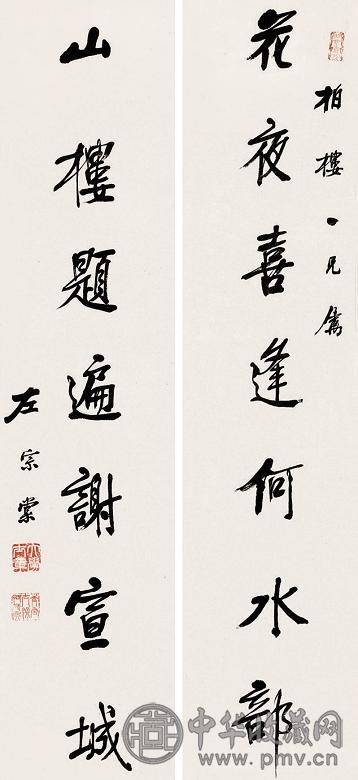 柏樓一兄屬
花夜喜逢何水部
山樓題遍謝宣城
左宗棠
中华收藏网
www.pmv.cn